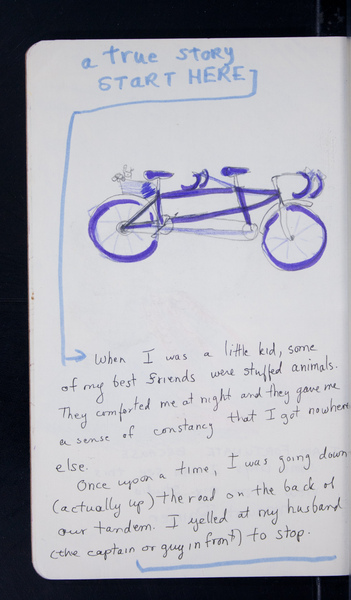 a true story
START HERE
When I was a little kid, some
of my best friends were stuffed animals.
They comforted me at night and they gave me
a sense of constancy that I got nowhere
else.
Once upon a time, I was going down
(actually up) the road on the back of
our tandem. I yelled at my husband
(the captain or guy in front) to stop.